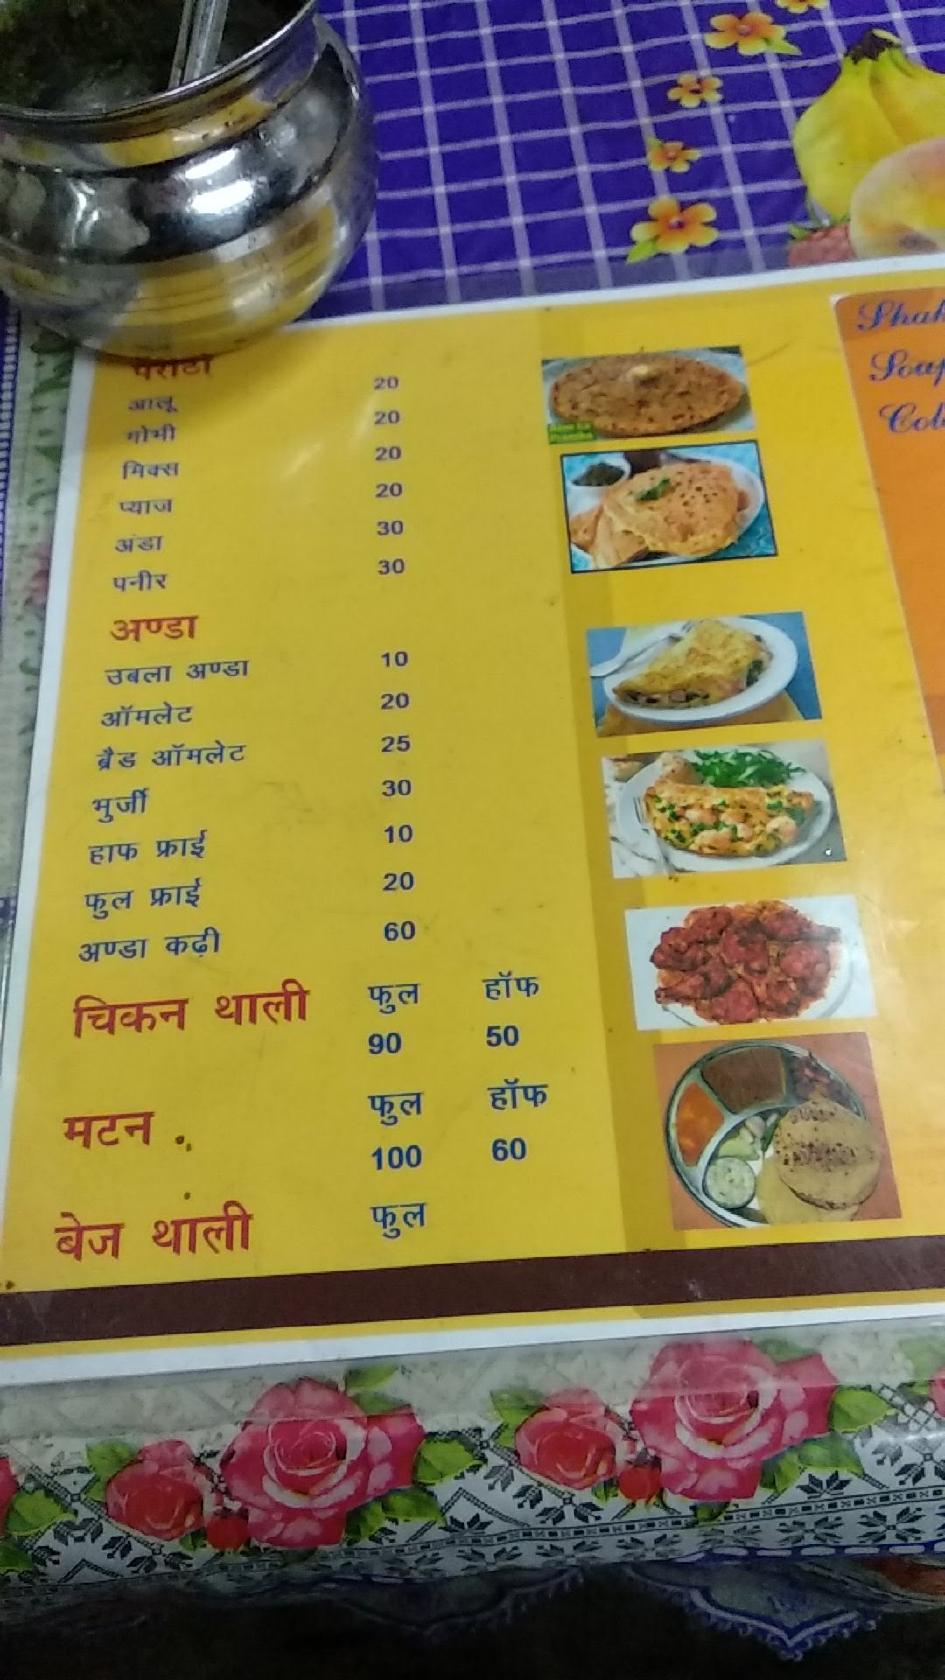 पराठा
आलू 20
गोभी 20
मिक्स 20
प्याज 20
अंडा 30
पनीर 30
अण्डा
उबला अण्डा 10
ऑमलेट 20
ब्रैड ऑमलेट 25
भुर्जी 30
हाफ फ्राई 10
फुल फ्राई 20
अण्डा कढ़ी 60
चिकन थाली फुल हॉफ
90 50
मटन फुल हॉफ
100 60
बेज थाली फुल